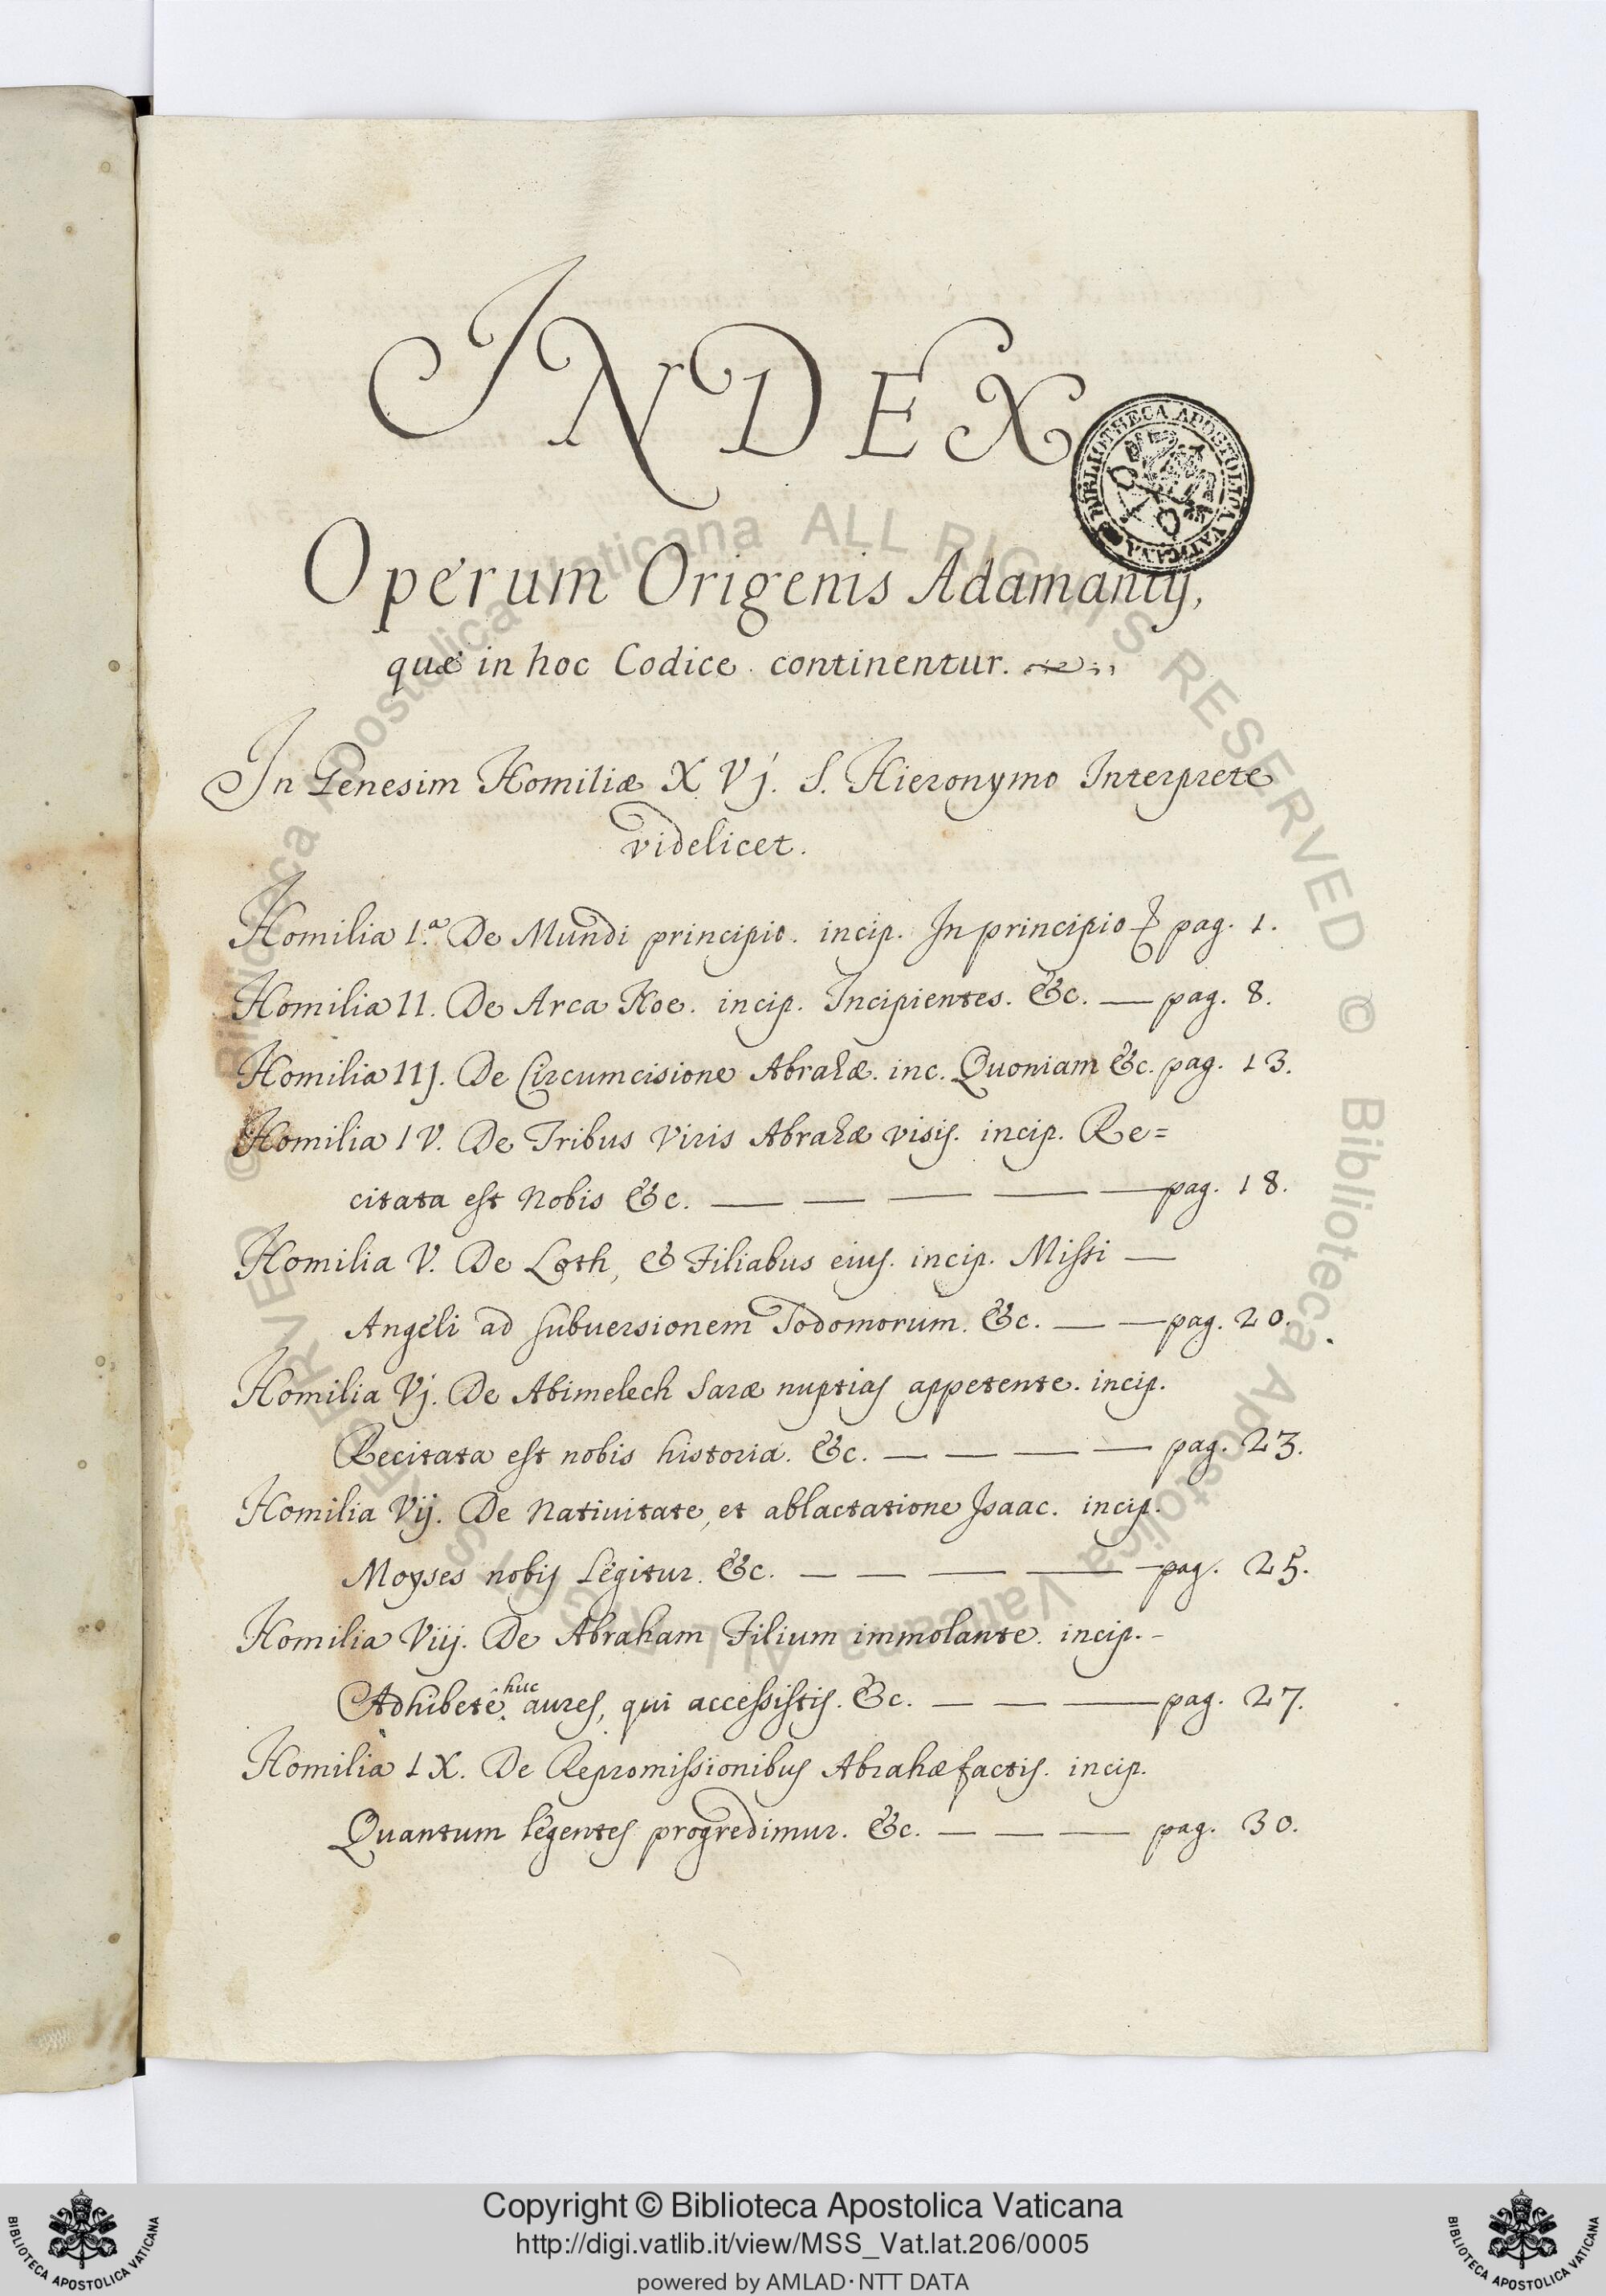 INDEX
BIBLIOTHECA APOSTOLICA VATICANA
Operum Origenis Adamantij,
quæ in hoc Codice continentur.
In Genesim Homiliæ XVj. S. Hieronymo Interprete
videlicet.
Homilia 1.ª De Mundi principio. incip. In principio & pag. 1.
Homilia 11. De Arca Noe. incip. Incipientes. &c. — pag. 8.
Homilia 11j. De Circumcisione Abrahæ. inc. Quoniam &c. pag. 13.
Homilia 1V. De Tribus Viris Abrahæ visis. incip. Re=
citata est Nobis &c. — — — — — pag. 18.
Homilia V. De Loth, & Filiabus eius. incip. Missi —
Angeli ad subuersionem Sodomorum. &c. — — pag. 20.
Homilia Vj. De Abimelech Saræ nuptias appetente. incip.
Recitata est nobis historia. &c. — — — — pag. 23.
Homilia Vij. De Natiuitate, et ablactatione Isaac. incip.
Moyses nobis Legitur. &c. — — — — — pag. 25.
Homilia Viij. De Abraham Filium immolante. incip. -
Adhibete huc aures, qui accessistis. &c. — — — pag. 27.
Homilia 1X. De Repromissionibus Abrahæ factis. incip.
Quantum legentes progredimur. &c. — — — pag. 30.
© Biblioteca Apostolica Vaticana ALL RIGHTS RESERVED © Biblioteca Apostolica Vaticana ALL RIGHTS RESERVED
Copyright © Biblioteca Apostolica Vaticana
http://digi.vatlib.it/view/MSS_Vat.lat.206/0005
powered by AMLAD·NTT DATA
BIBLIOTECA APOSTOLICA VATICANA
BIBLIOTECA APOSTOLICA VATICANA